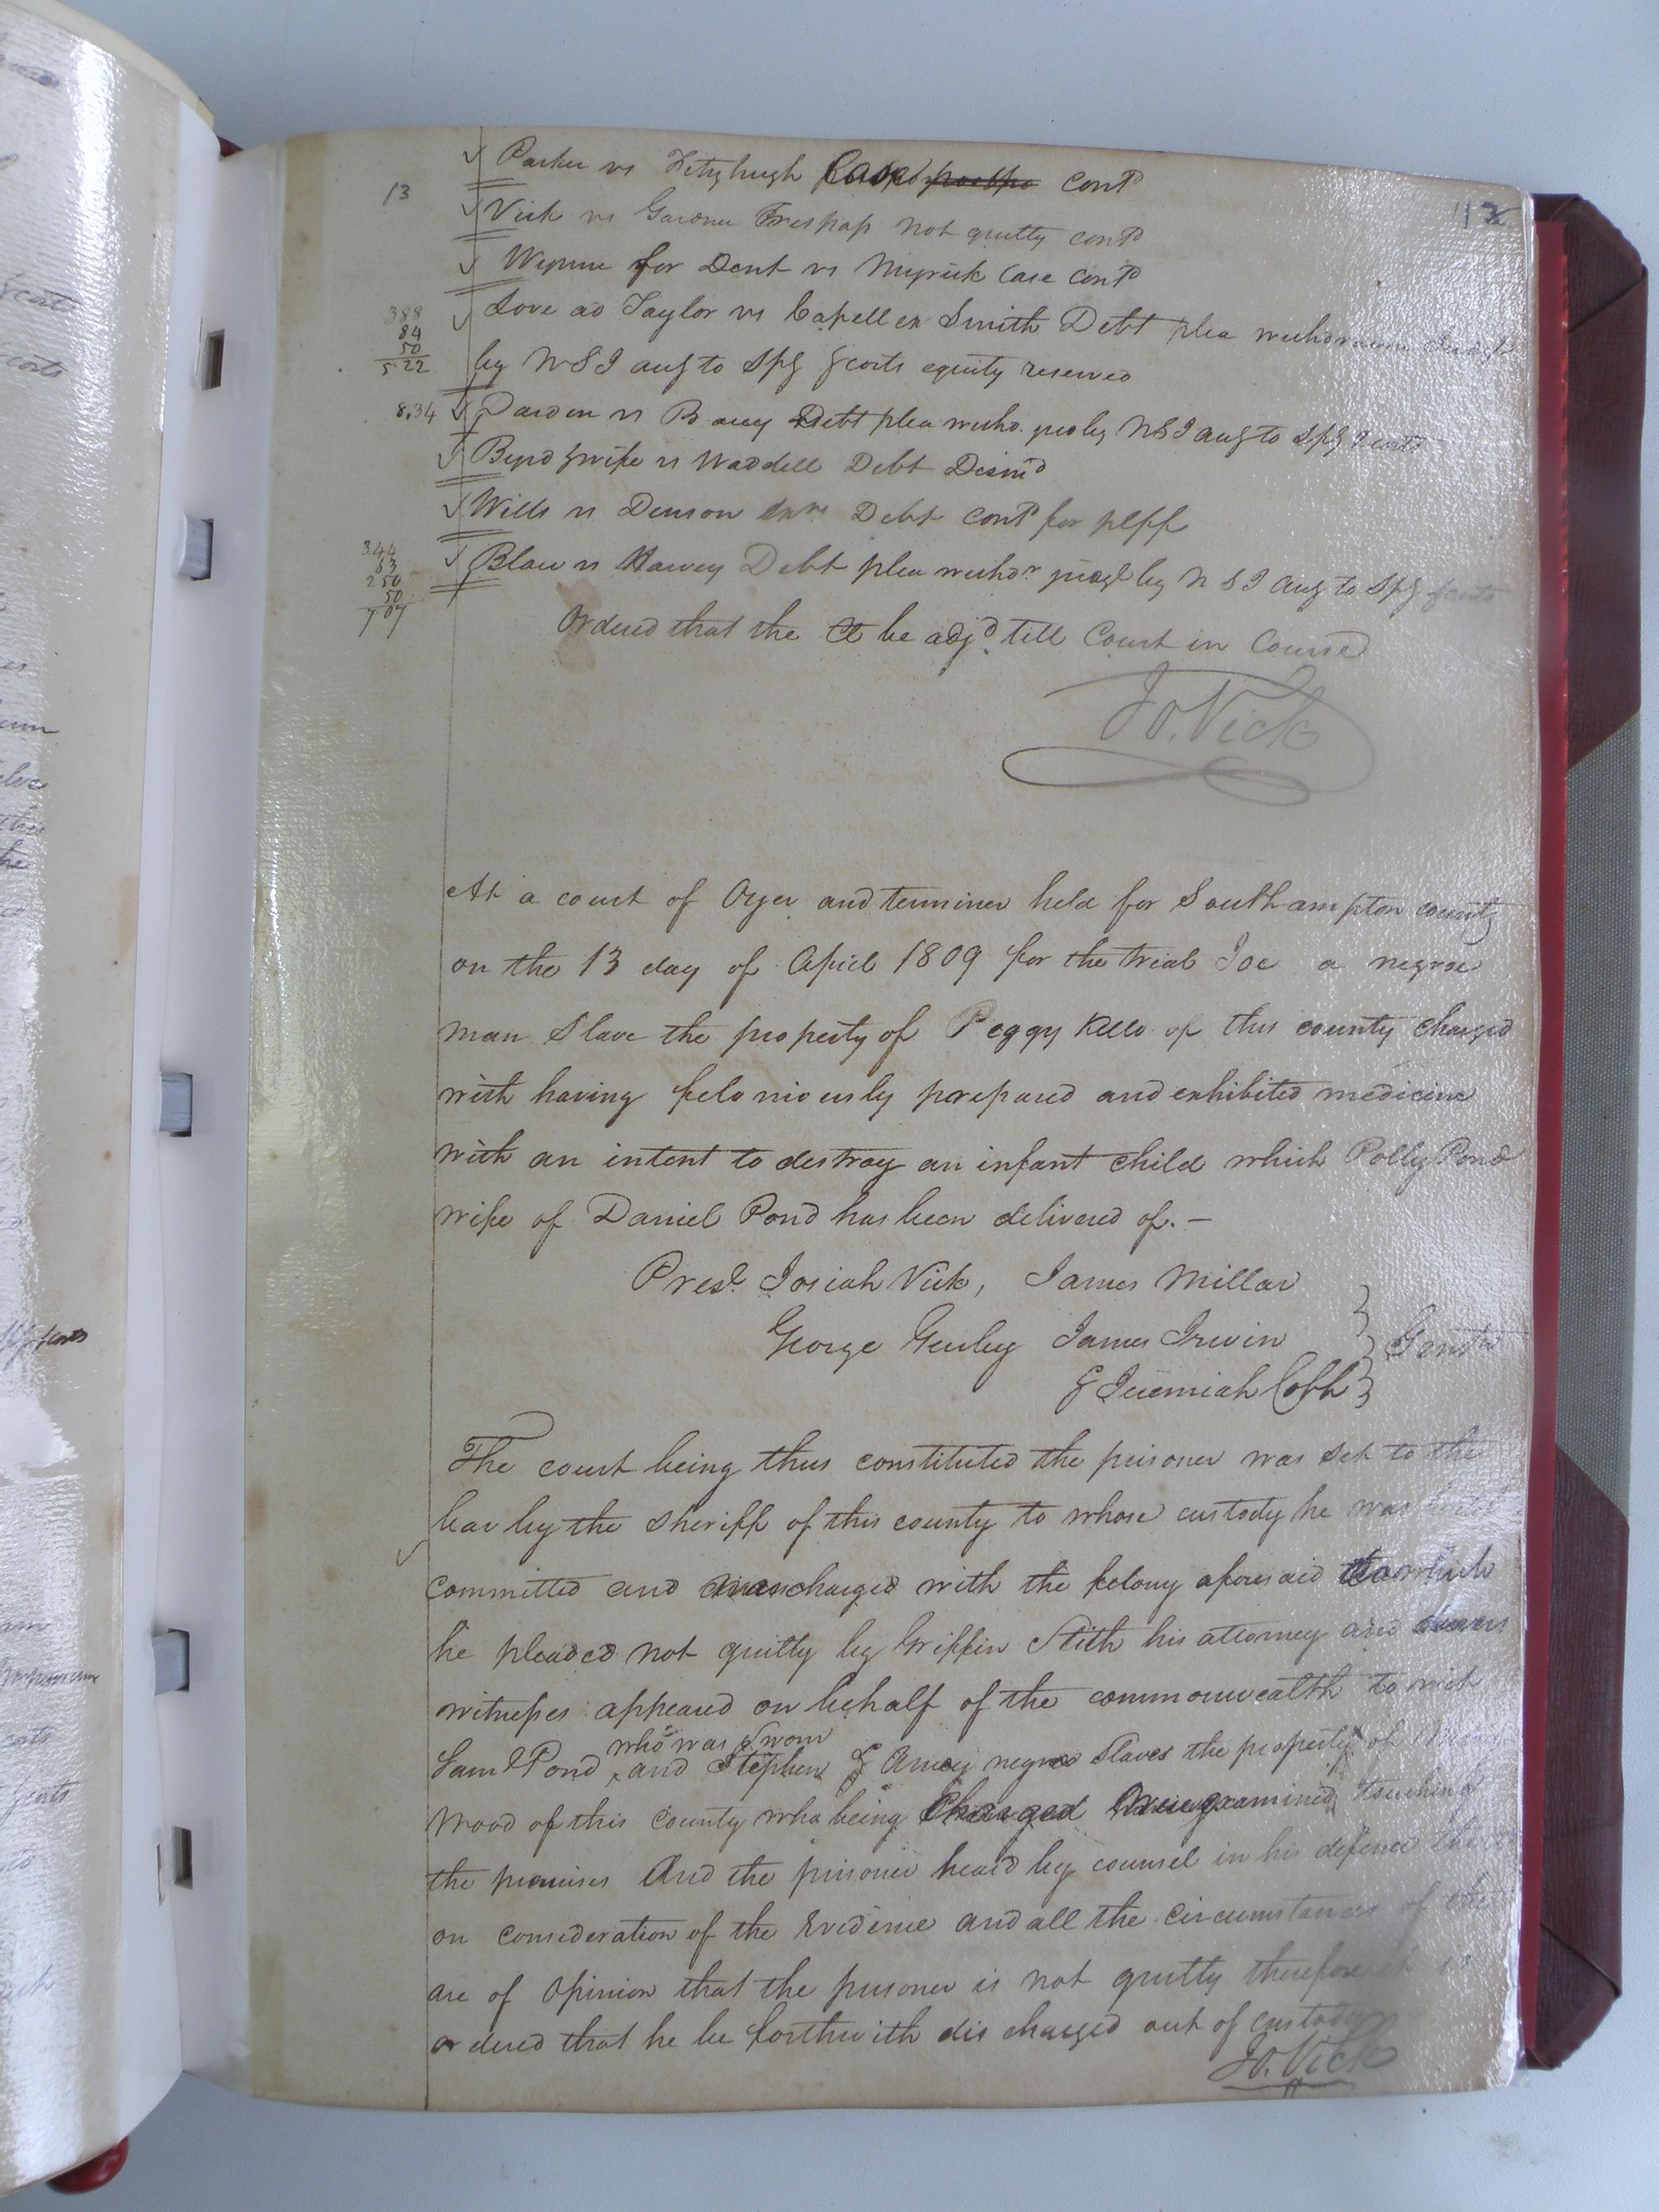 Parker vs Fitzhugh Case contd
13
Vick vs Gardner Trespass not guilty contd
Wynne for Dent vs Myrick Case contd
388
84
50
522
Love ad Taylor vs Capell ex Smith Debt plea
by N S I aug to Spg & costs equity reserved
8.34
Darden vs Barry Debt plea withd. jud by N S I aug to Spg & costs
Byrd & wife vs Waddell Debt Desmd
Wills vs Denson Debt contd for plff
3.44
63
2 50
50
7 07
Blow vs Harvey Debt plea withdr judgt by N S I aug to Spg & costs
Ordered that the Ct be adjd. till Court in Course
Jo. Vick
At a court of Oyer and terminer held for Southampton county
on the 13 day of April 1809 for the trial Joe a negroe
man Slave the property of Peggy Kello of this county charged
with having feloniously prepared and exhibited medicine
with an intent to destroy an infant child which Polly Pond
wife of Daniel Pond has been delivered of. —
Prest. Josiah Vick, James Millar
George Gurley James Irwin
Gentn
& Jeremiah Cobb
The court being thus constituted the prisoner was set to the
bar by the sheriff of this county to whose custody he was
committed and was charged with the felony aforesaid to which
he pleaded not guilty by Griffin Stith his attorney and
witnesses appeared on behalf of the commonwealth to wit
who was sworn
Saml Pond and Stephen & Amey negroe Slaves the property of
Wood of this County who being Charged were examined touching
the premises And the prisoner heard by counsel in his defence
on consideration of the Evidence and all the circumstances of the
are of opinion that the prisoner is not guilty therefore it is
ordered that he be forthwith discharged out of custody
Jo. Vick